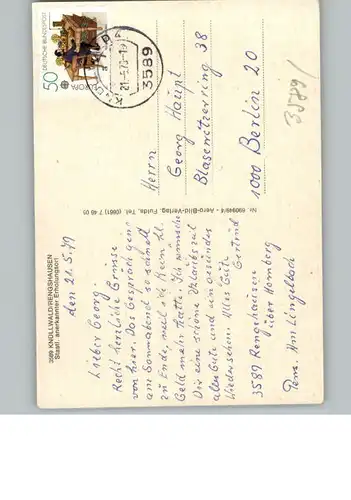 3589 KNÜLLWALD/RENGSHAUSEN
Staatl. anerkannter Erholungsort
den 21.5.79
Lieber Georg.
Recht herzliche Grüsse
von hier. Das Gespräch ging
am Sonnabend so schnell
zu Ende, weil ich kein kl.
Geld mehr hatte. Ich wünsche
Dir eine schöne Urlaubszeit
alles Gute und ein gesundes
Wiedersehen. Alles Gute
Gertrud
3589 Rengshausen
über Homberg
Pens. Am Lingelbach
Nr. 690949/4 - Aero-Bild-Verlag, Fulda, Tel. (0661) 7 48 05
50
DEUTSCHE BUNDESPOST
EUROPA
3589
Herrn
Georg Haupt
Blasewitzerring 38
1000 Berlin 20
3589/